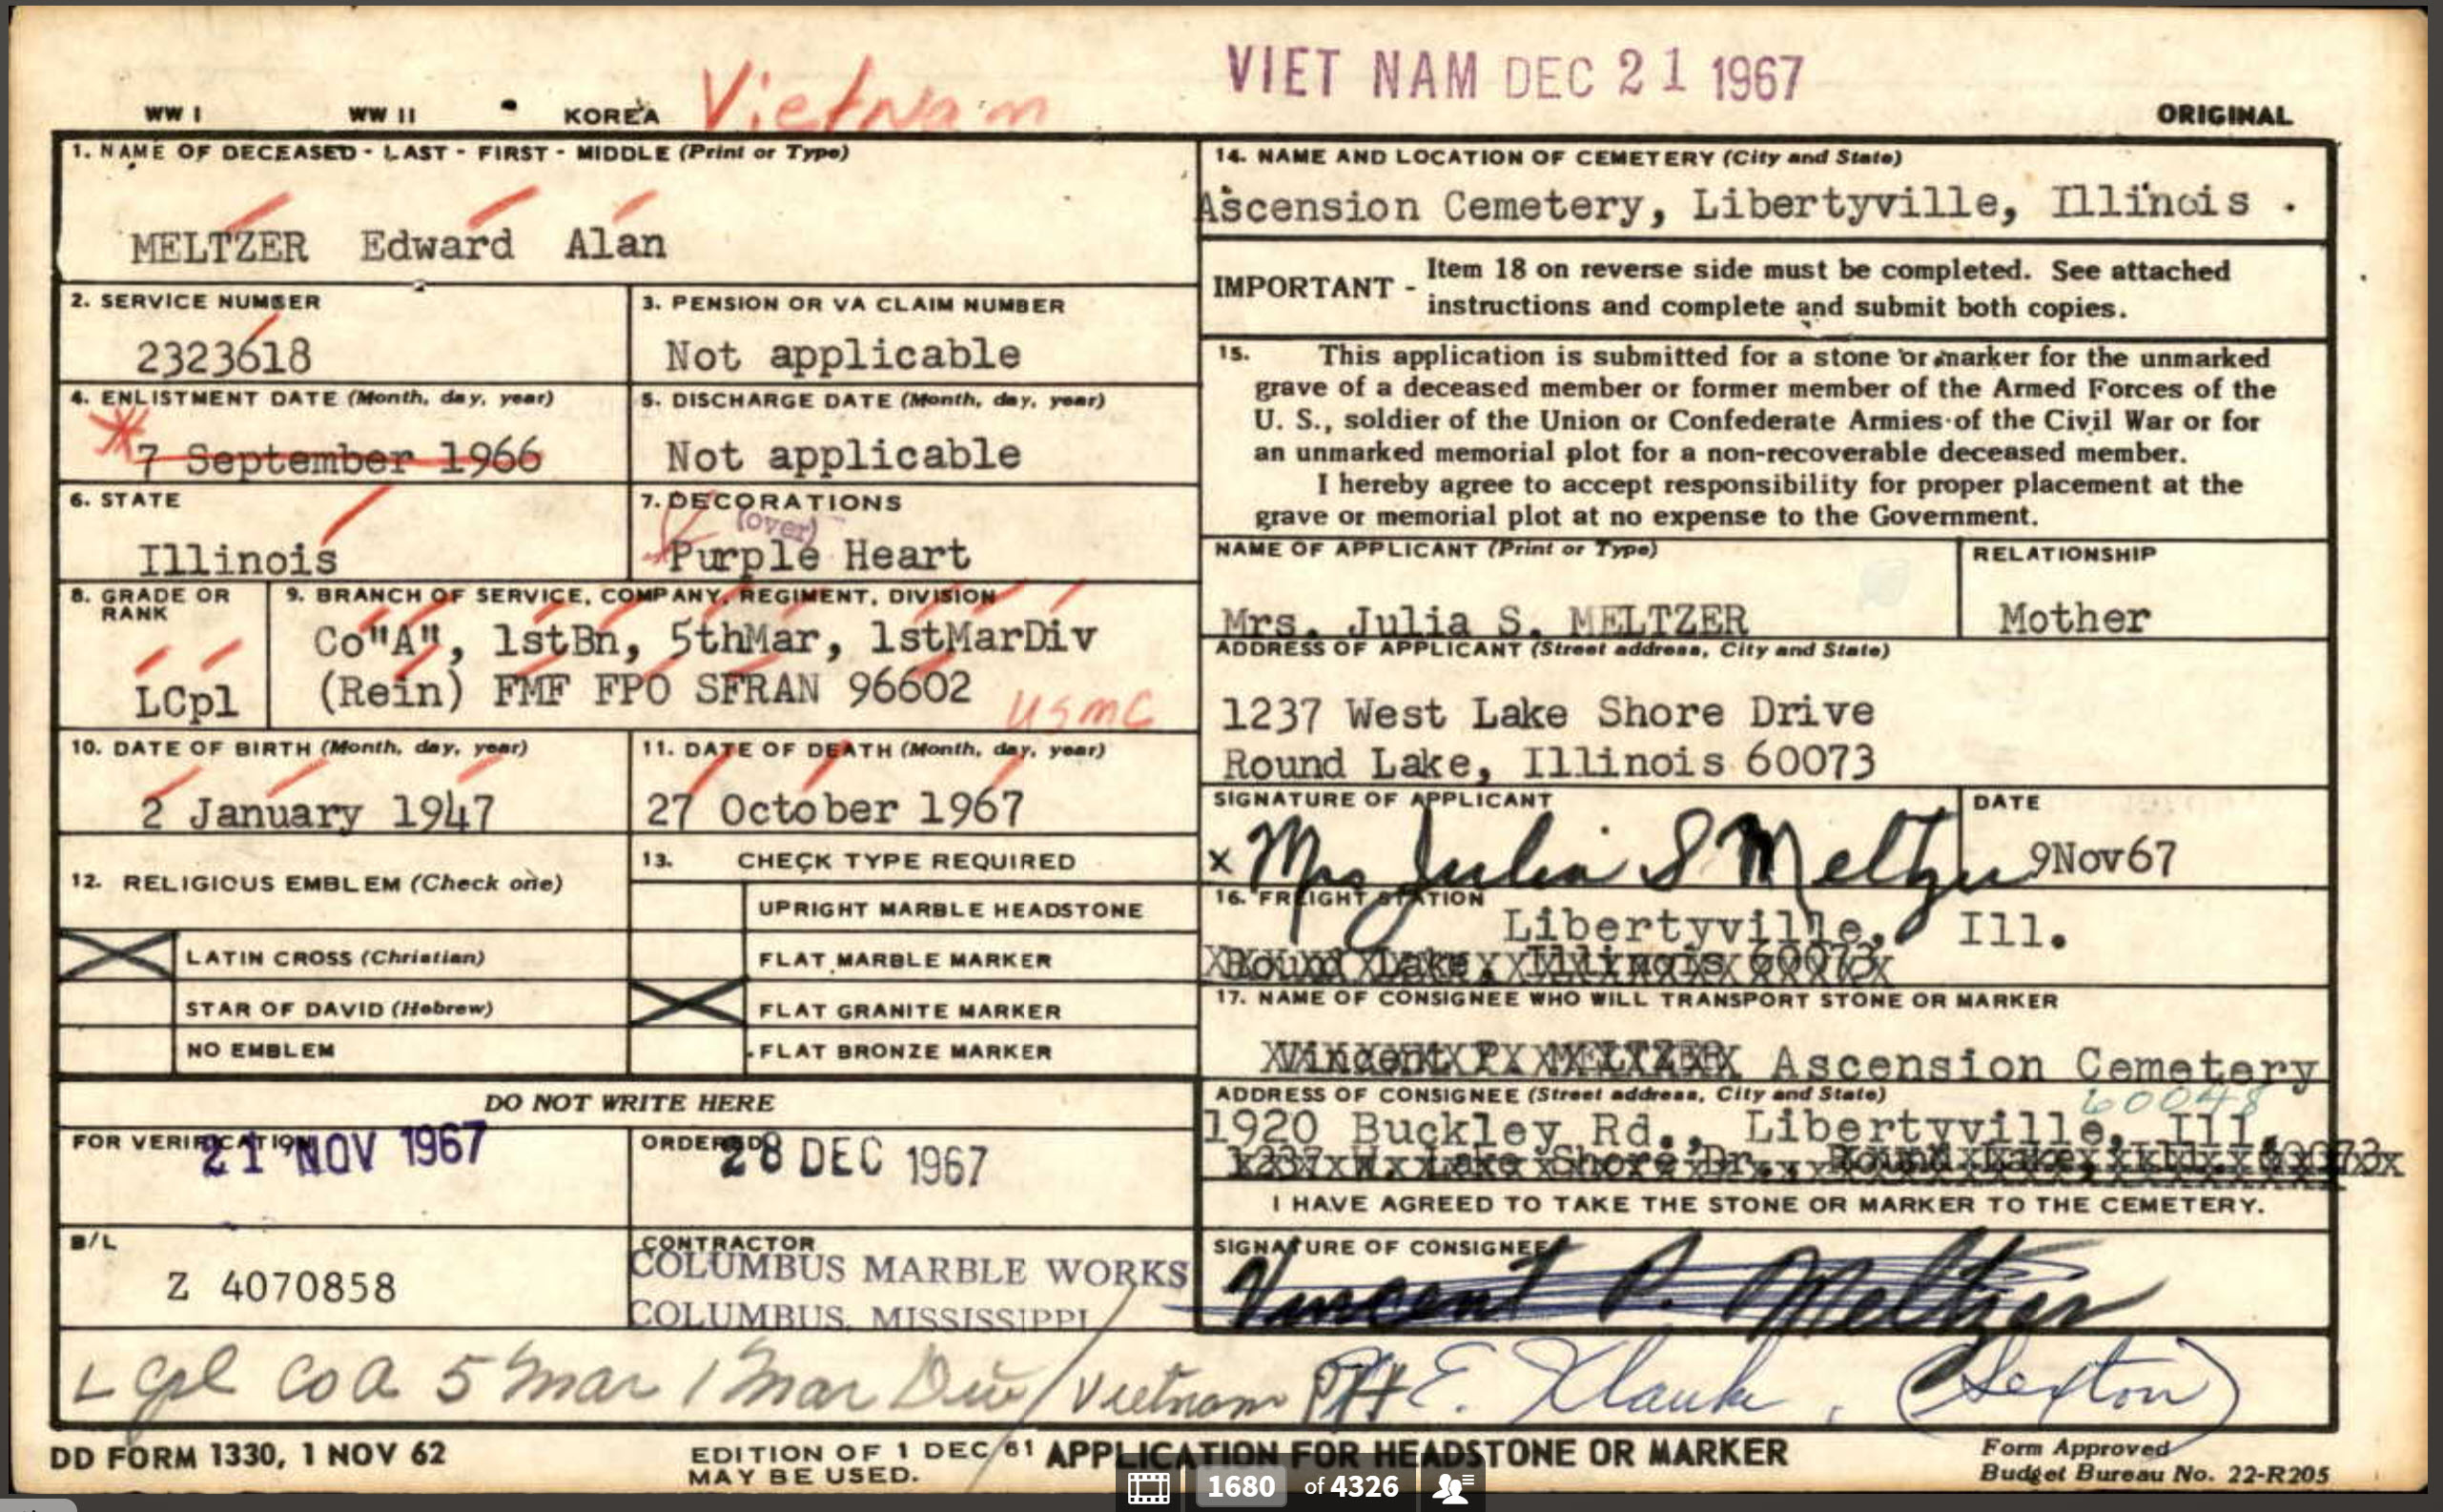 VIET NAM DEC 21 1967
WW I WW II KOREA Vietnam ORIGINAL
1. NAME OF DECEASED - LAST - FIRST - MIDDLE (Print or Type)
MELTZER Edward Alan
2. SERVICE NUMBER
2323618
3. PENSION OR VA CLAIM NUMBER
Not applicable
4. ENLISTMENT DATE (Month, day, year)
7 September 1966
5. DISCHARGE DATE (Month, day, year)
Not applicable
6. STATE
Illinois
7. DECORATIONS
(over)
Purple Heart
8. GRADE OR
RANK
LCpl
9. BRANCH OF SERVICE, COMPANY, REGIMENT, DIVISION
Co"A", 1stBn, 5thMar, 1stMarDiv
(Rein) FMF FPO SFRAN 96602
USMC
10. DATE OF BIRTH (Month, day, year)
2 January 1947
11. DATE OF DEATH (Month, day, year)
27 October 1967
12. RELIGIOUS EMBLEM (Check one)
LATIN CROSS (Christian)
STAR OF DAVID (Hebrew)
NO EMBLEM
13. CHECK TYPE REQUIRED
UPRIGHT MARBLE HEADSTONE
FLAT MARBLE MARKER
FLAT GRANITE MARKER
FLAT BRONZE MARKER
DO NOT WRITE HERE
FOR VERIFICATION
21 NOV 1967
ORDERED
28 DEC 1967
B/L
Z 4070858
CONTRACTOR
COLUMBUS MARBLE WORKS
COLUMBUS, MISSISSIPPI
14. NAME AND LOCATION OF CEMETERY (City and State)
Ascension Cemetery, Libertyville, Illinois .
IMPORTANT - Item 18 on reverse side must be completed. See attached
instructions and complete and submit both copies.
15. This application is submitted for a stone or marker for the unmarked
grave of a deceased member or former member of the Armed Forces of the
U. S., soldier of the Union or Confederate Armies of the Civil War or for
an unmarked memorial plot for a non-recoverable deceased member.
I hereby agree to accept responsibility for proper placement at the
grave or memorial plot at no expense to the Government.
NAME OF APPLICANT (Print or Type)
Mrs. Julia S. MELTZER
RELATIONSHIP
Mother
ADDRESS OF APPLICANT (Street address, City and State)
1237 West Lake Shore Drive
Round Lake, Illinois 60073
SIGNATURE OF APPLICANT
x Mrs Julia S Meltzer
DATE
9Nov67
16. FREIGHT STATION
Libertyville, Ill.
Round Lake, Illinois 60073
17. NAME OF CONSIGNEE WHO WILL TRANSPORT STONE OR MARKER
Vincent P. MELTZER Ascension Cemetery
ADDRESS OF CONSIGNEE (Street address, City and State)
60048
1920 Buckley Rd., Libertyville, Ill.
1237 W. Lake Shore Dr., Round Lake, Ill. 60073
I HAVE AGREED TO TAKE THE STONE OR MARKER TO THE CEMETERY.
SIGNATURE OF CONSIGNEE
Vincent P. Meltzer
L Cpl Co A 5 Mar 1 Mar Div / Vietnam PH E. Klauk, (Sexton)
DD FORM 1330, 1 NOV 62
EDITION OF 1 DEC 61
MAY BE USED.
APPLICATION FOR HEADSTONE OR MARKER
Form Approved
Budget Bureau No. 22-R205
1680 of 4326